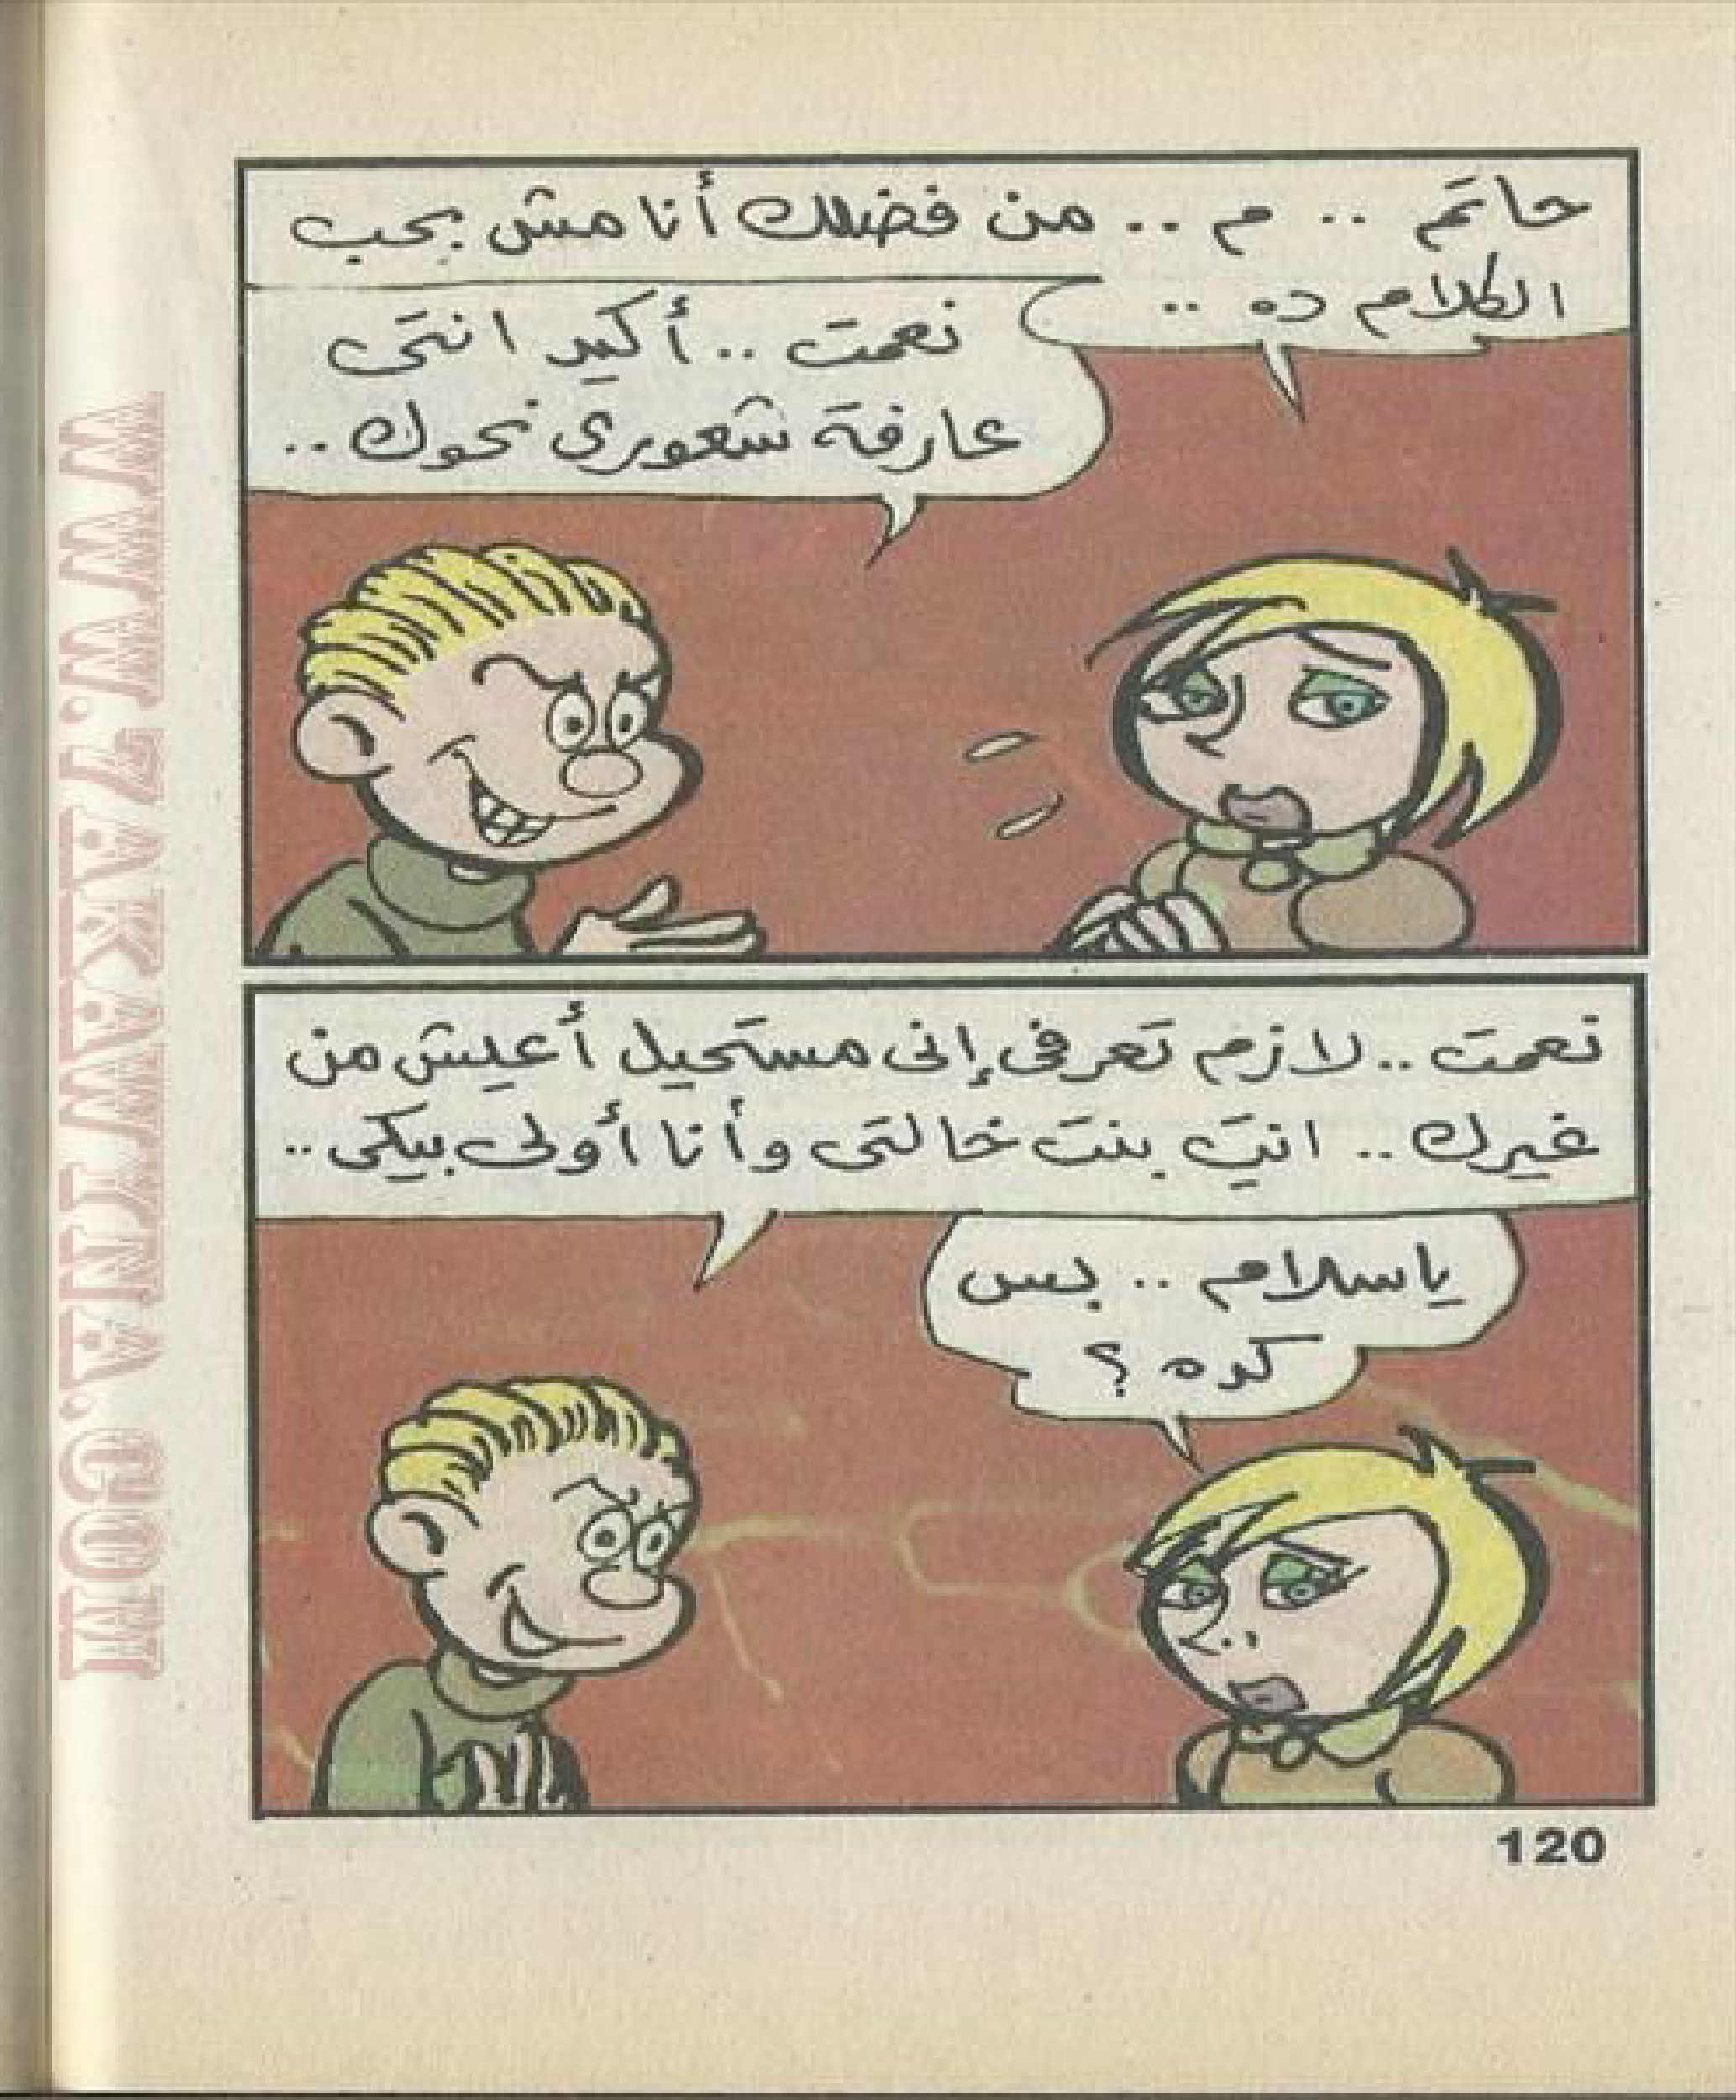 حاتم .. م .. من فضلك أنا مش بحب
الكلام ده ..
نعمت .. أكيد انتى
عارفة شعورى نحوك ..
نعمت .. لازم تعرفى إنى مستحيل أعيش من
غيرك .. انتِ بنت خالتى وأنا أولى بيكى ..
ياسلام .. بس
كده ؟
120
WWW.7AKAWTNA.COM